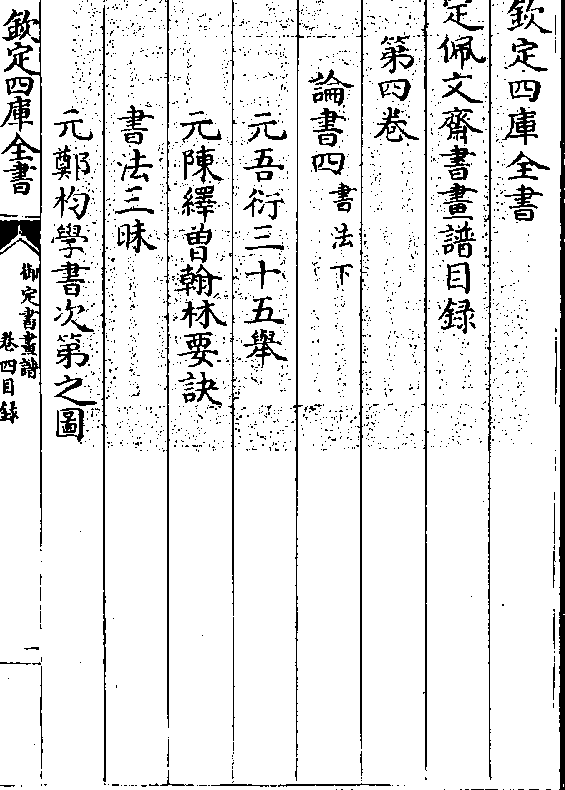 欽定四庫全書
定佩文齋書畫譜目録
第四卷
論書四書法下
元吾衍三十五舉
元陳繹曽翰林要訣
書法三昧
元鄭杓學書次第之圖
欽定四庫全書
御定書畫譜
卷四目録
一